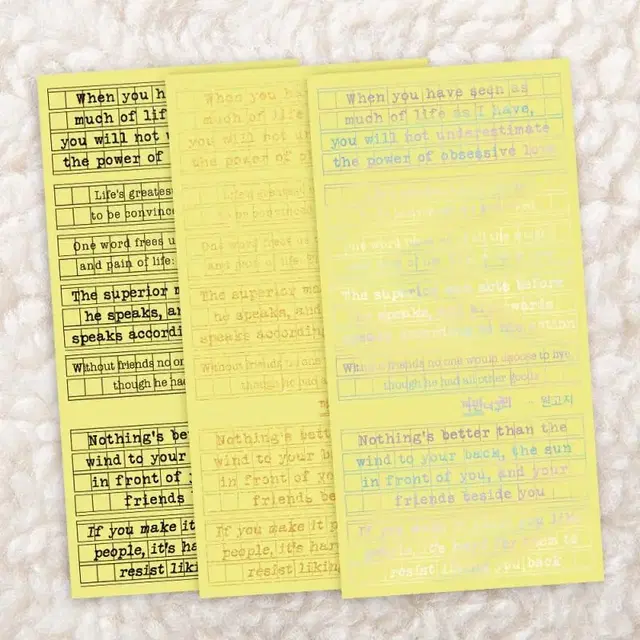 When you h
much of lif
you will not
the power of
Life's greates
to be convinc
One word frees u
and pain of life:
The superior m
he speaks, an
speaks accordi
Without friends no on
though he had
Nothing's be
wind to your
in front of y
friends
If you make it
people, it's har
resist liki
When you h
much of life
you will not u
the power of o
Life's greatest
to be convinced
One word frees us
and pain of life
The superior ma
he speaks, and
speaks according
Without friends no one
though he had
Nothing's bett
wind to your b
in front of yo
friends be
If you make it p
people, it's har
resist liking
When you have seen as
much of life as I have,
you will not underestimate
the power of obsessive love
The superior acts before
he speaks, and
Without friends no one would choose to live,
though he had all other goods
원고지
Nothing's better than the
wind to your back, the sun
in front of you, and your
friends beside you
If you
people, it's to
resist you back